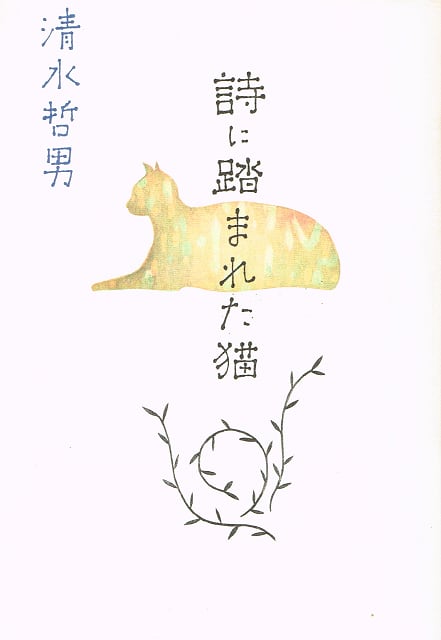 詩に踏まれた猫
清水哲男